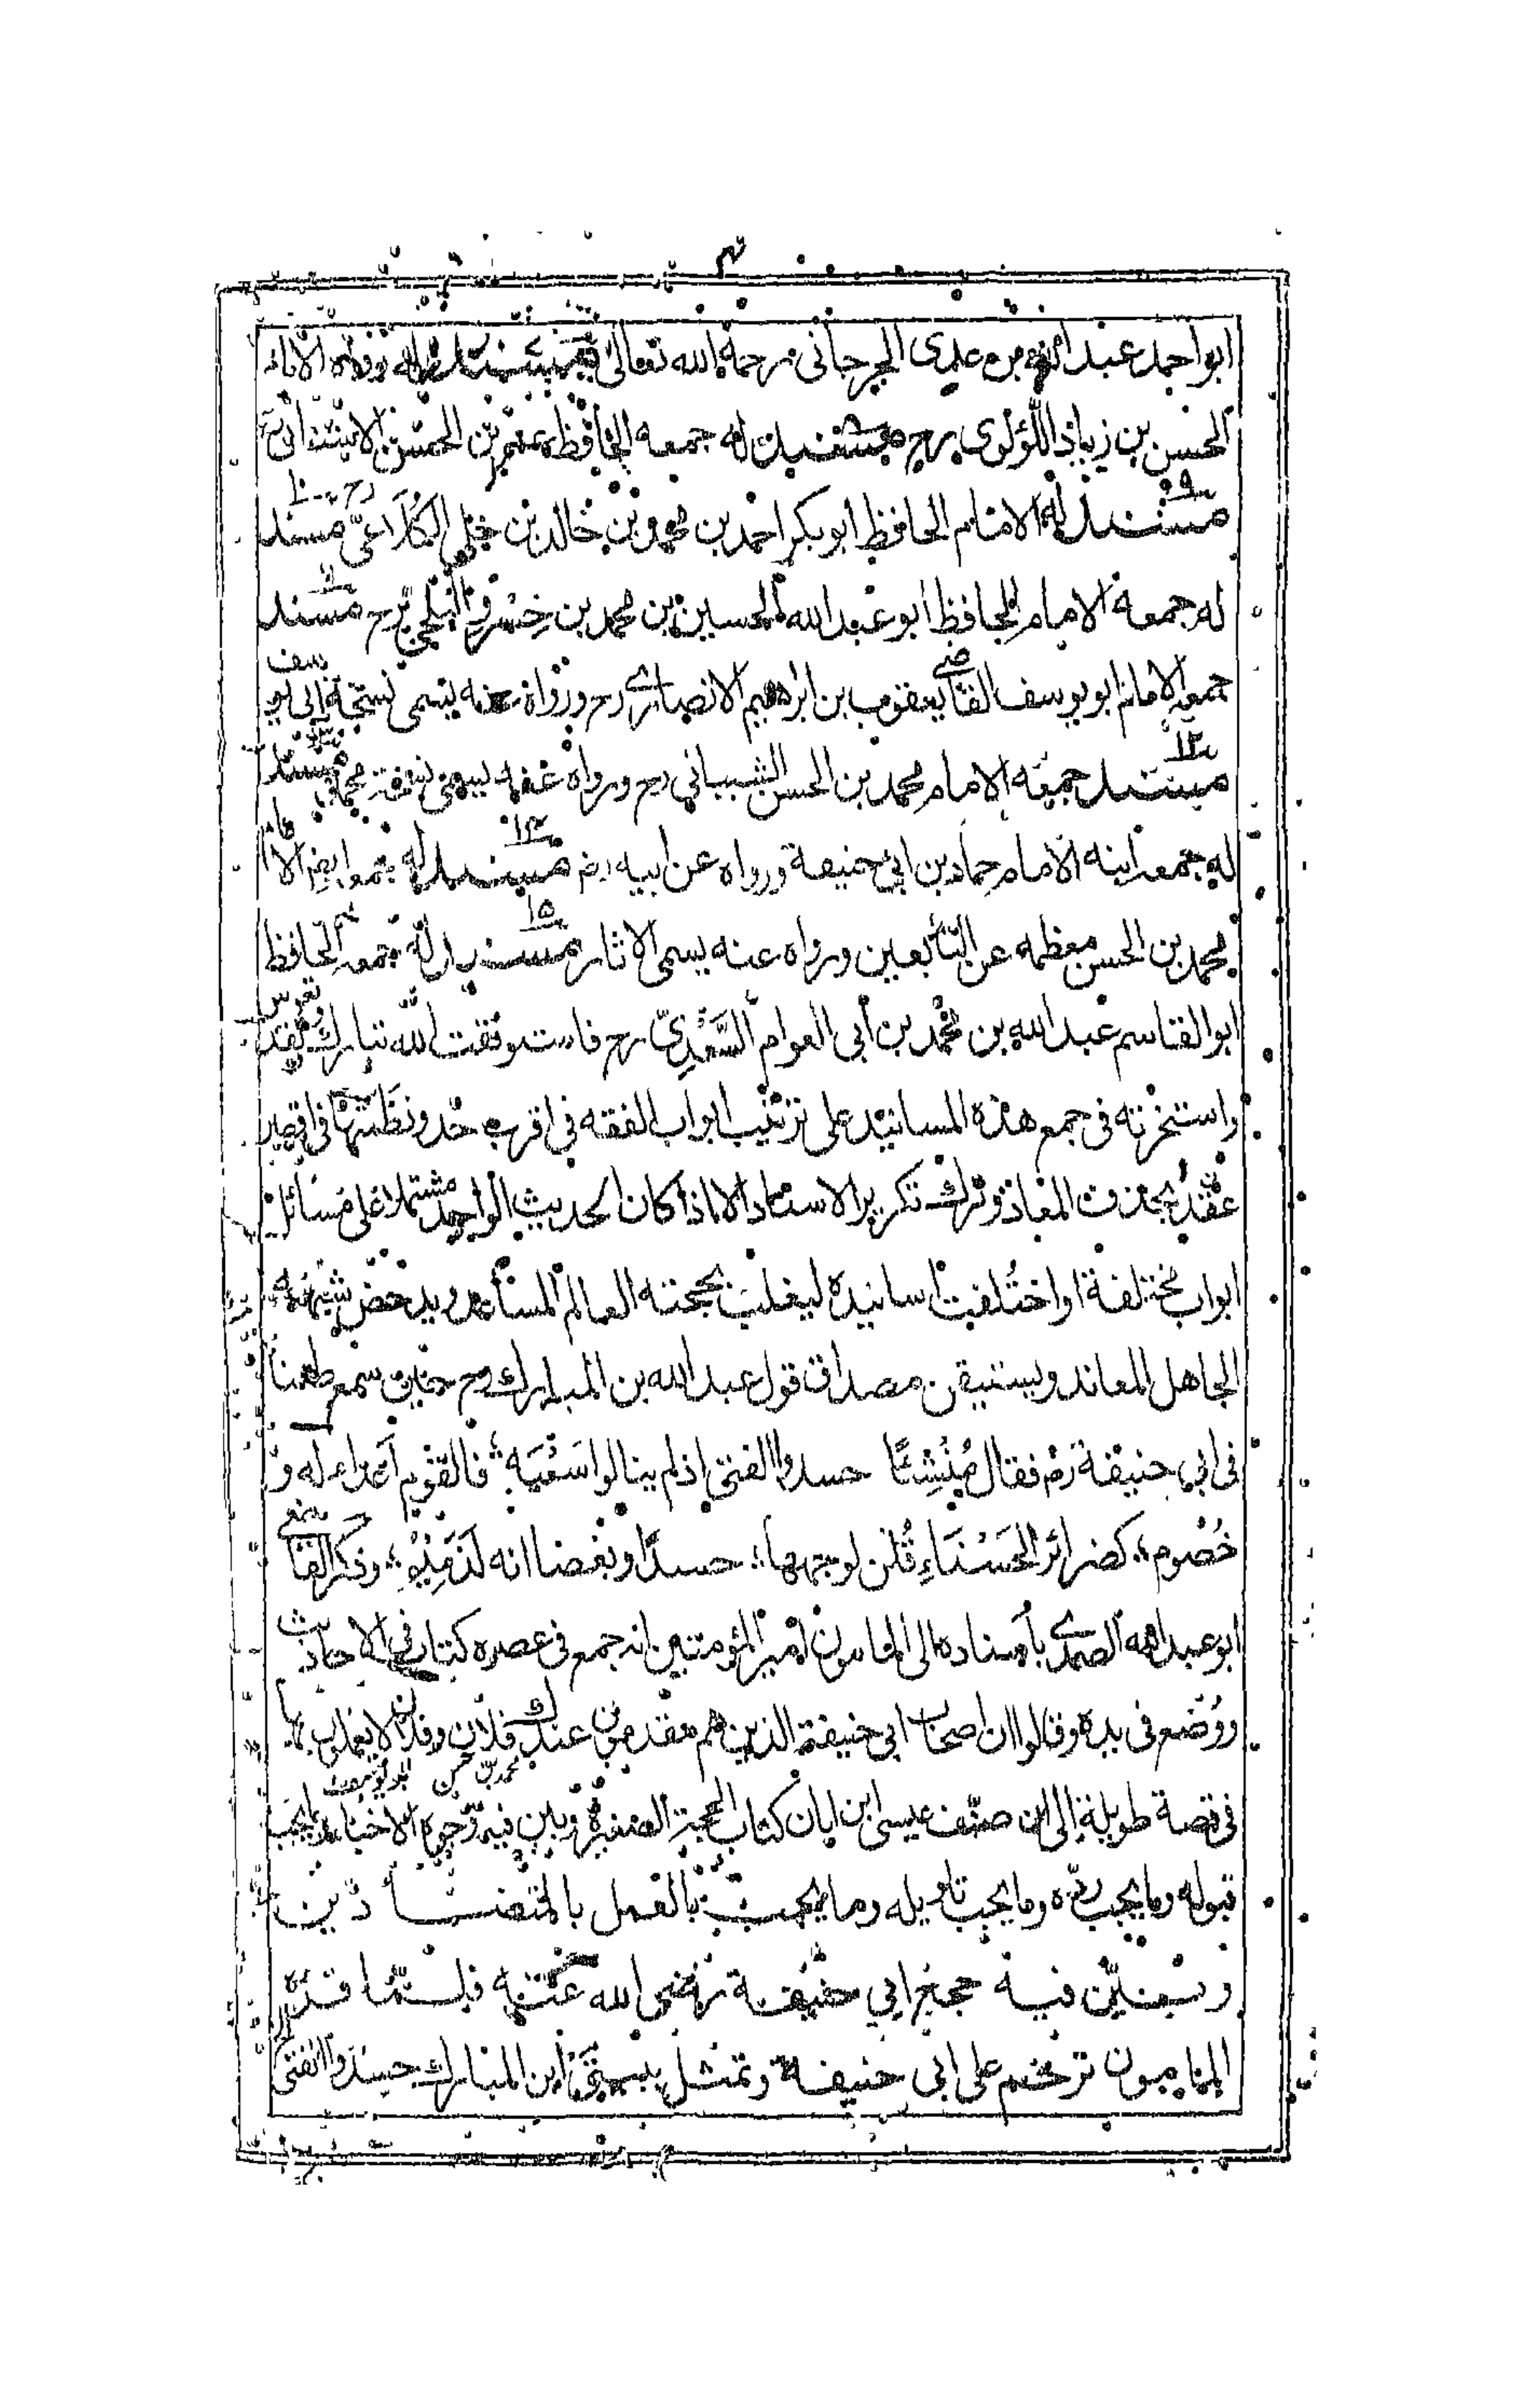 ابو احمد عبد الله بن عدى الجرجانى رحمة الله تعالى مسند له رواه الامام
الحسن بن زياد اللؤلوى رح مسند له جمعه الحافظ عمر بن الحسن الاشنانى
رح ١٠
٩
مسند له الامام الحافظ ابو بكر احمد بن محمد بن خالد بن خلى الكلاعى مسند
١١
له جمعه الامام الحافظ ابو عبد الله الحسين بن محمد بن خسرو البلخى رح مسند
جمعه الامام ابو يوسف القاضى يعقوب بن ابراهيم الانصارى رح ورواه عنه يسمى نسخة ابى يوسف
١٢
مسند جمعه الامام محمد بن الحسن الشيبانى رح ورواه عنه يسمى نسخة محمد مسند
١٤
له جمعه ابنه الامام حماد بن ابى حنيفة ورواه عن ابيه رض مسند له جمعه ايضا الامام
١٥
محمد بن الحسن معظمه عن التابعين ورواه عنه يسمى الاثار مسند له جمعه الحافظ
ابو القاسم عبد الله بن محمد بن ابى العوام السغدى رح فاستوفقت الله تبارك وتقدس
واستخرته فى جمع هذه المسانيد على ترتيب ابواب الفقه فى اقرب حد ونظمتها فى اقصر
عقد بحذف المعاد وترك تكرير الاسناد الا اذا كان الحديث الواحد مشتملا على مسائل
ابواب مختلفة او اختلفت اسانيده ليغلب بحجته العالم المساعد ويدحض شبهة
الجاهل المعاند ويستيقن مصداق قول عبد الله بن المبارك رح حين سمع طعنا
فى ابى حنيفة رض فقال مُنْشِئًا حسدوا الفتى اذ لم ينالوا سَعْيَه ؛ فالقوم اعداء له و
خُصُوم ؛ كضرائر الحَسْنَاءِ قُلْن لوجهها ؛ حسدًا وبغضا انه لَدَمِيْم ؛ وذكر القاضى
ابو عبد الله الصيمرى باسناده الى المامون امير المؤمنين انه جمع فى عصره كتاب فى الاحاديث
ووُضع فى يده وقالوا ان اصحاب ابى حنيفة الذين هم مقدمون عندك فلان وفلان لا يعملون بها
محمد بن حسن ابو يوسف
فى قصة طويلة الى ان صنف عيسى ابن ابان كتاب الحجة الصغير وبين فيه وجوه الاخبار وما يجب
قبوله وما يجب رده وما يجب تاويله وما يجب العمل بالمتضادين
وبين فيه حجج ابى حنيفة رضى الله عنه فلما قرء
المامون ترحم على ابى حنيفة وتمثل ببيتى ابن المبارك حسدوا الفتى